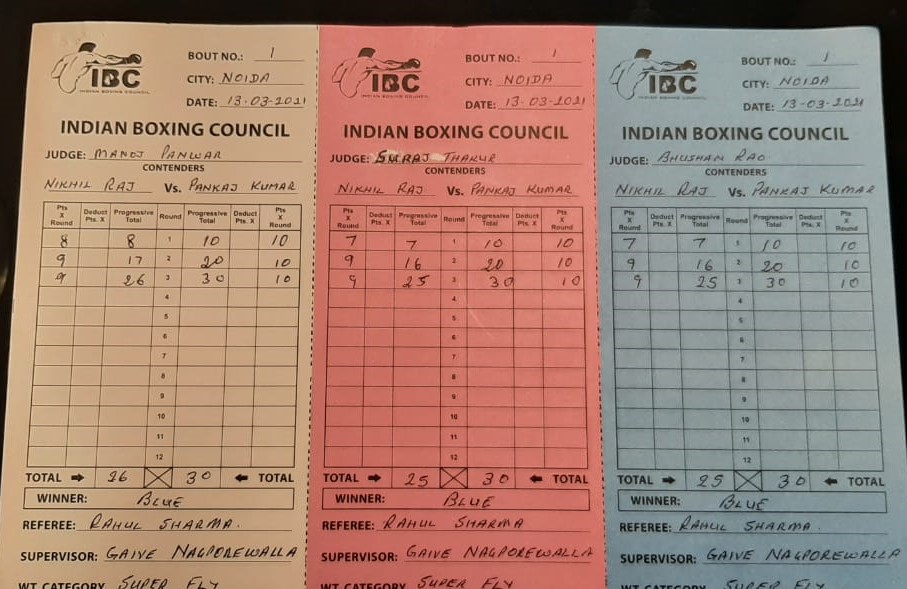 IBC
INDIAN BOXING COUNCIL
BOUT NO.: 1
CITY: NOIDA
DATE: 13-03-2021
INDIAN BOXING COUNCIL
JUDGE: MANOJ PANWAR
CONTENDERS
NIKHIL RAJ Vs. PANKAJ KUMAR
Pts X Round Deduct Pts. X Progressive Total Round Progressive Total Deduct Pts. X Pts X Round
8 8 1 10 10
9 17 2 20 10
9 26 3 30 10
4
5
6
7
8
9
10
11
12
TOTAL 26 30 TOTAL
WINNER: BLUE
REFEREE: RAHUL SHARMA.
SUPERVISOR: GAIVE NAGPOREWALLA
WT CATEGORY SUPER FLY
IBC
INDIAN BOXING COUNCIL
BOUT NO.: 1
CITY: NOIDA
DATE: 13-03-2021
INDIAN BOXING COUNCIL
JUDGE: SURAJ THAKUR
CONTENDERS
NIKHIL RAJ Vs. PANKAJ KUMAR
Pts X Round Deduct Pts. X Progressive Total Round Progressive Total Deduct Pts. X Pts X Round
7 7 1 10 10
9 16 2 20 10
9 25 3 30 10
4
5
6
7
8
9
10
11
12
TOTAL 25 30 TOTAL
WINNER: BLUE
REFEREE: RAHUL SHARMA
SUPERVISOR: GAIVE NAGPOREWALLA
WT CATEGORY SUPER FLY
IBC
INDIAN BOXING COUNCIL
BOUT NO.: 1
CITY: NOIDA
DATE: 13-03-2021
INDIAN BOXING COUNCIL
JUDGE: BHUSHAN RAO
CONTENDERS
NIKHIL RAJ Vs. PANKAJ KUMAR
Pts X Round Deduct Pts. X Progressive Total Round Progressive Total Deduct Pts. X Pts X Round
7 7 1 10 10
9 16 2 20 10
9 25 3 30 10
4
5
6
7
8
9
10
11
12
TOTAL 25 30 TOTAL
WINNER: BLUE
REFEREE: RAHUL SHARMA.
SUPERVISOR: GAIVE NAGPOREWALLA
WT CATEGORY SUPER FLY